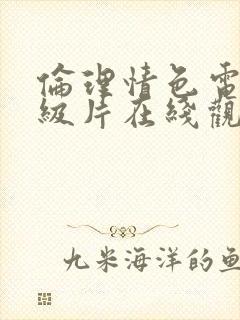 倫理情色電
級片在綫觀
九米海洋的魚